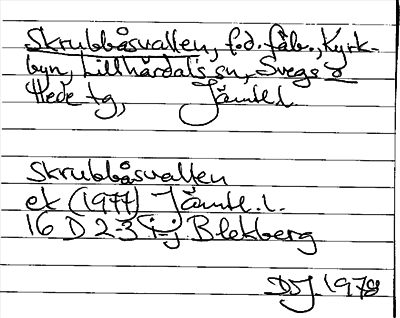 Skrubbåsvallen, f.d. fäb., Kyrk-
byn, Lillhärdals sn, Svegs o
Hede tg, Jämtl. l.
Skrubbåsvallen
ek (1977) Jämtl. l.
16 D 2-3 i-j Blekberg
DJ 1978